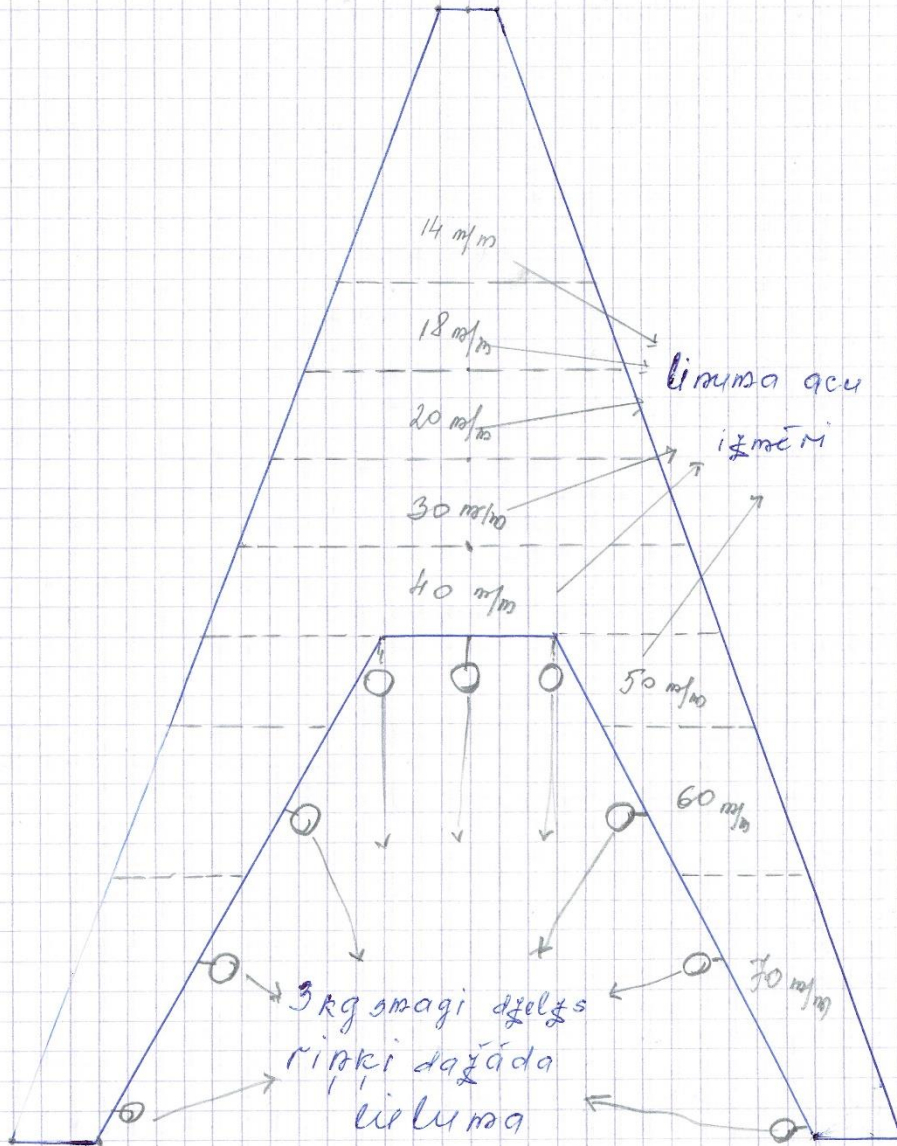 14 m/m
18 m/m
20 m/m
30 m/m
40 m/m
50 m/m
60 m/m
70 m/m
linuma acu
izmēri
3 kg smagi dzelzs
riņķi dažāda
lieluma